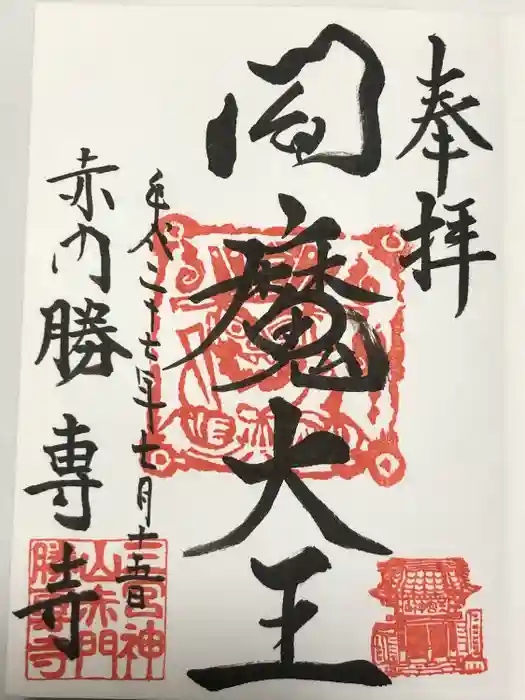 奉拝
閻魔大王
平成二十七年七月十五日
赤門勝専寺
三宮神
山赤門
勝專寺